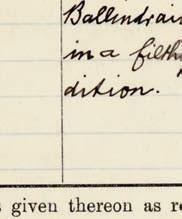 Ballindrai
in a filthy
dition.
s given thereon as re